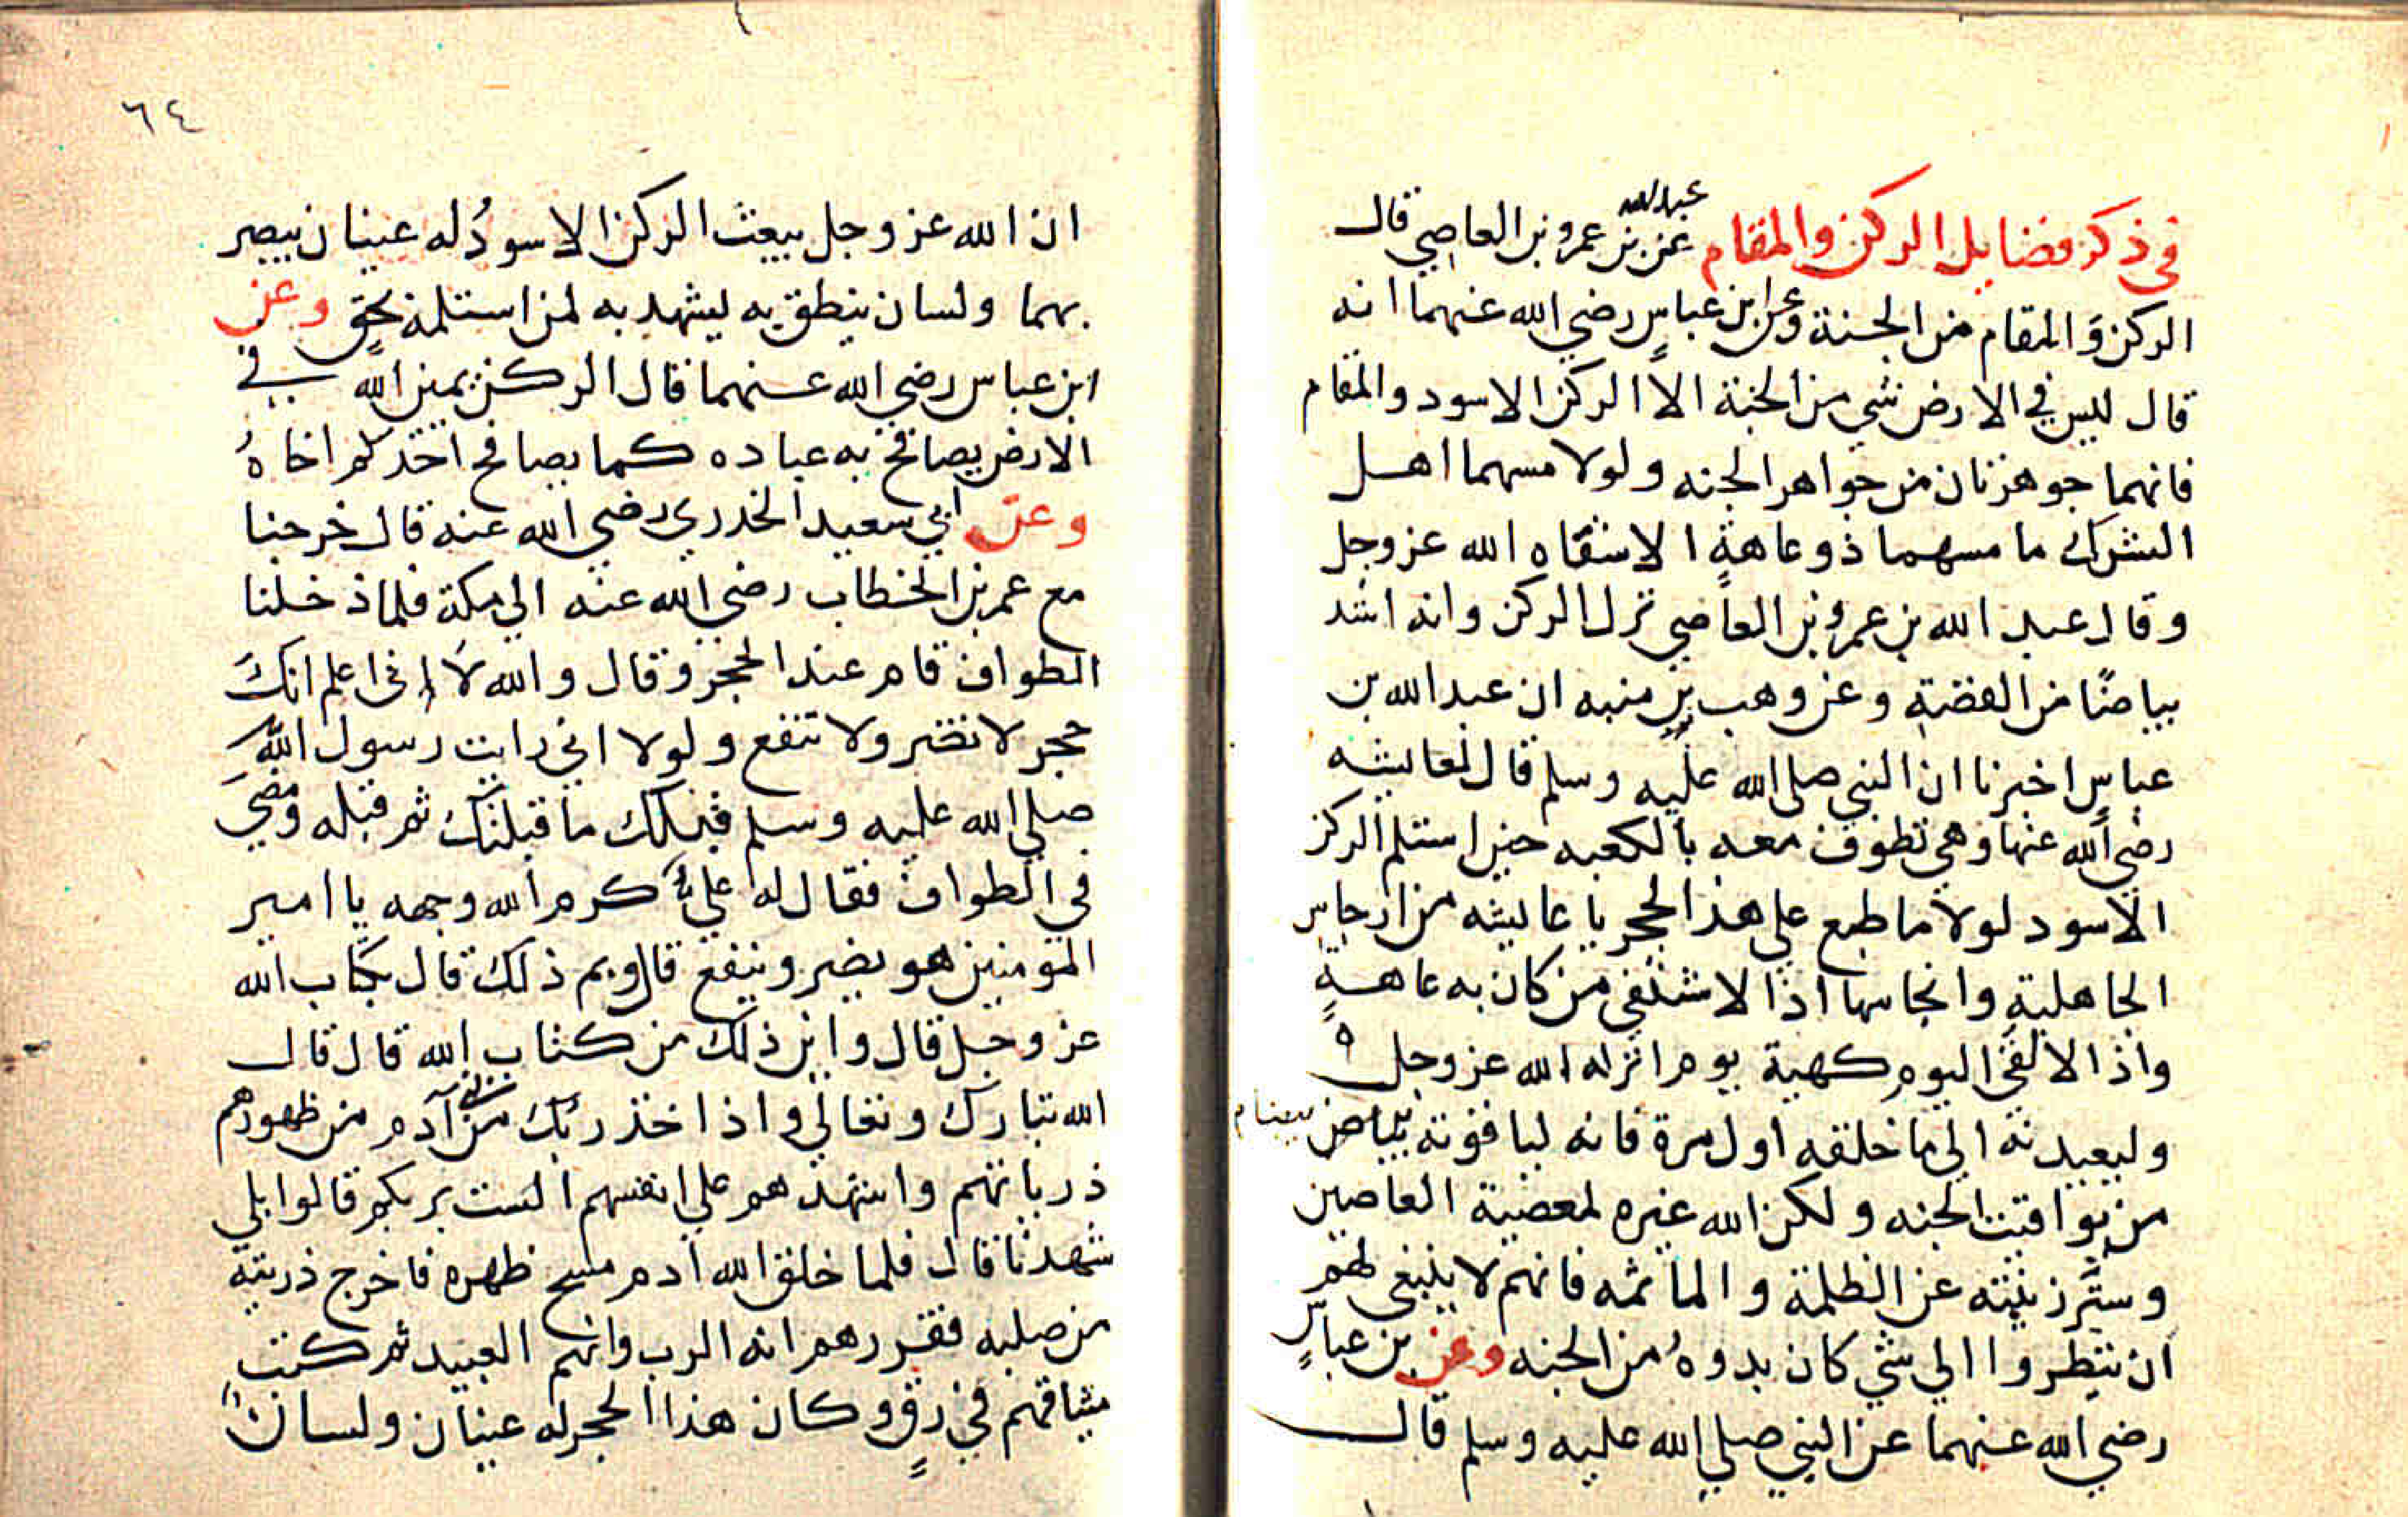 في ذكر فضايل الركن والمقام عن عبد الله بن عمرو بن العاصي قال
الركن والمقام من الجنة وعن ابن عباس رضي الله عنهما انه
قال ليس في الارض شي من الجنة الا الركن الاسود والمقام
فانهما جوهرتان من جواهر الجنه ولولا مسهما اهل
الشرك ما مسهما ذو عاهة الا شفاه الله عز وجل
وقال عبد الله بن عمرو بن العاصي نزل الركن وانه اشد
بياضا من الفضة وعن وهب بن منبه ان عبد الله بن
عباس اخبرنا ان النبي صلى الله عليه وسلم قال لعايشه
رضي الله عنها وهي تطوف معه بالكعبه حين استلم الركن
الاسود لولا ما طبع على هذا الحجر يا عايشه من ارجاس
الجاهلية وانجاسها اذا لاستشفي من كان به عاهة
واذا لالفي اليوم كهية يوم انزله الله عز وجل
وليعيدنه الي ما خلقه اول مرة فانه لياقوته بيضا
من يواقيت الجنه ولكن الله غيره لمعصية العاصين
وستر زينته عن الظلمة والماثمه فانهم لا ينبغي لهم
ان ينظروا الي شي كان بدوه من الجنه وعن بن عباس
رضي الله عنهما عن النبي صلي الله عليه وسلم قال
٦٤
ان الله عز وجل يبعث الركن الاسود له عينان يبصر
بهما ولسان ينطق به ليشهد به لمن استلمه بحق وعن
ابن عباس رضي الله عنهما قال الركن يمين الله في
الارض يصافح به عباده كما يصافح احدكم اخاه
وعن ابي سعيد الخدري رضي الله عنه قال خرجنا
مع عمر بن الخطاب رضي الله عنه الي مكة فلما دخلنا
الطواف قام عند الحجر وقال والله لا اني اعلم انك
حجر لا تضر ولا تنفع ولولا اني رايت رسول الله
صلي الله عليه وسلم قبلك ما قبلتك ثم قبله ومضي
في الطواف فقال له علي كرم الله وجهه يا امير
المومنين هو يضر وينفع قال وبم ذلك قال بكتاب الله
عز وجل قال واين ذلك من كتاب الله قال قال
الله تبارك وتعالي واذا اخذ ربك من بني آدم من ظهورهم
ذرياتهم واشهدهم علي انفسهم الست بربكم قالوا بلي
شهدنا قال فلما خلق الله ادم مسح ظهره فاخرج ذريته
من صلبه فقررهم انه الرب وانهم العبيد ثم كتب
ميثاقهم في رق وكان هذا الحجر له عينان ولسان